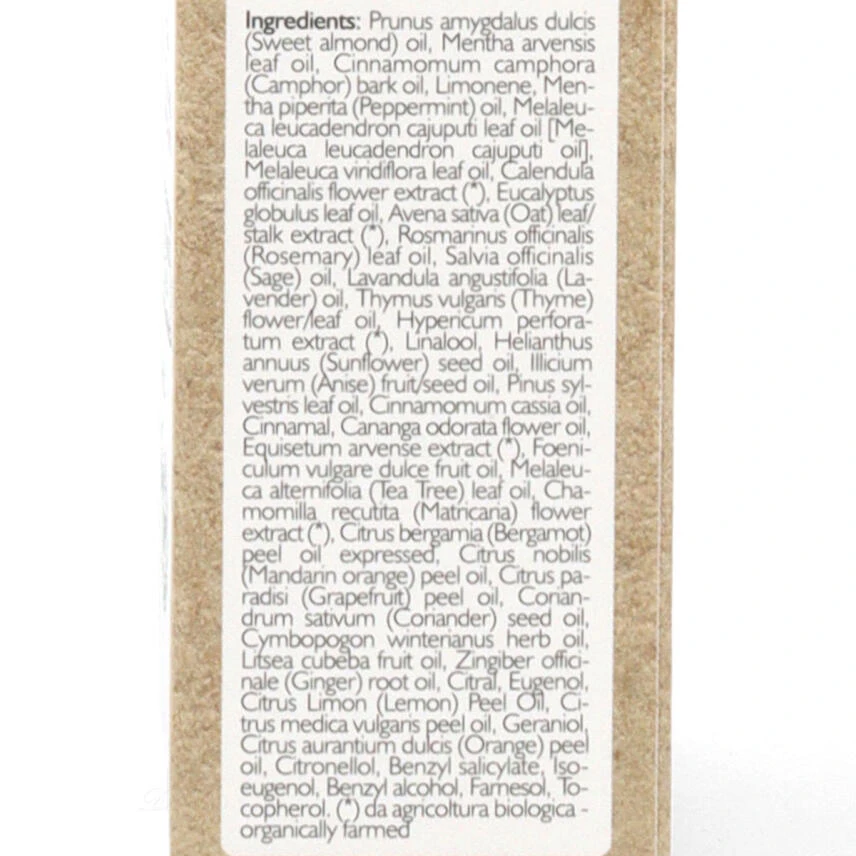 Ingredients: Prunus amygdalus dulcis
(Sweet almond) oil, Mentha arvensis
leaf oil, Cinnamomum camphora
(Camphor) bark oil, Limonene, Men-
tha piperita (Peppermint) oil, Melaleu-
ca leucadendron cajuputi leaf oil [Me-
laleuca leucadendron cajuputi oil],
Melaleuca viridiflora leaf oil, Calendula
officinalis flower extract (*), Eucalyptus
globulus leaf oil, Avena sativa (Oat) leaf/
stalk extract (*), Rosmarinus officinalis
(Rosemary) leaf oil, Salvia officinalis
(Sage) oil, Lavandula angustifolia (La-
vender) oil, Thymus vulgaris (Thyme)
flower/leaf oil, Hypericum perfora-
tum extract (*), Linalool, Helianthus
annuus (Sunflower) seed oil, Illicium
verum (Anise) fruit/seed oil, Pinus syl-
vestris leaf oil, Cinnamomum cassia oil,
Cinnamal, Cananga odorata flower oil,
Equisetum arvense extract (*), Foeni-
culum vulgare dulce fruit oil, Melaleu-
ca alternifolia (Tea Tree) leaf oil, Cha-
momilla recutita (Matricaria) flower
extract (*), Citrus bergamia (Bergamot)
peel oil expressed, Citrus nobilis
(Mandarin orange) peel oil, Citrus pa-
radisi (Grapefruit) peel oil, Corian-
drum sativum (Coriander) seed oil,
Cymbopogon winterianus herb oil,
Litsea cubeba fruit oil, Zingiber offici-
nale (Ginger) root oil, Citral, Eugenol,
Citrus Limon (Lemon) Peel Oil, Ci-
trus medica vulgaris peel oil, Geraniol,
Citrus aurantium dulcis (Orange) peel
oil, Citronellol, Benzyl salicylate, Iso-
eugenol, Benzyl alcohol, Farnesol, To-
copherol. (*) da agricoltura biologica -
organically farmed